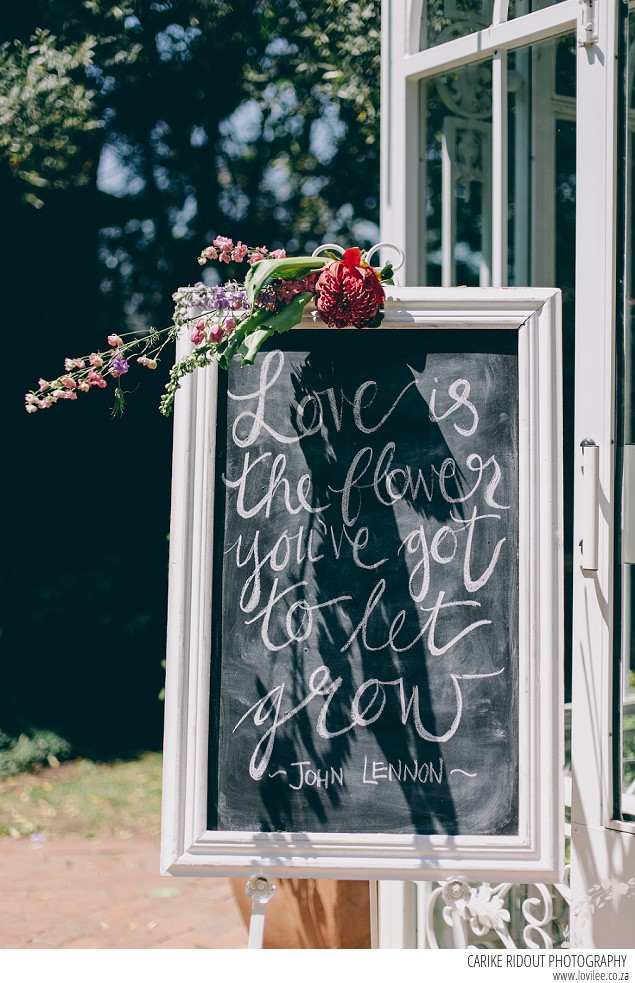 Love is
the flower
you've got
to let
grow
~ JOHN LENNON ~
CARIKE RIDOUT PHOTOGRAPHY
www.lovilee.co.za